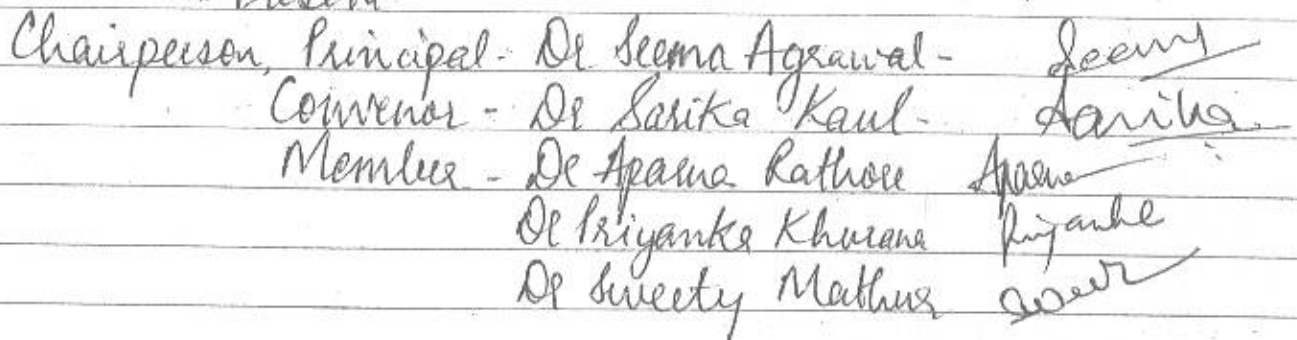 Chairperson, Principal - Dr Seema Agrawal - Seema
Convenor - Dr Sarika Kaul - Sarika
Member - Dr Aparna Rathore Aparna
Dr Priyanka Khurana Priyanka
Dr Sweety Mathur